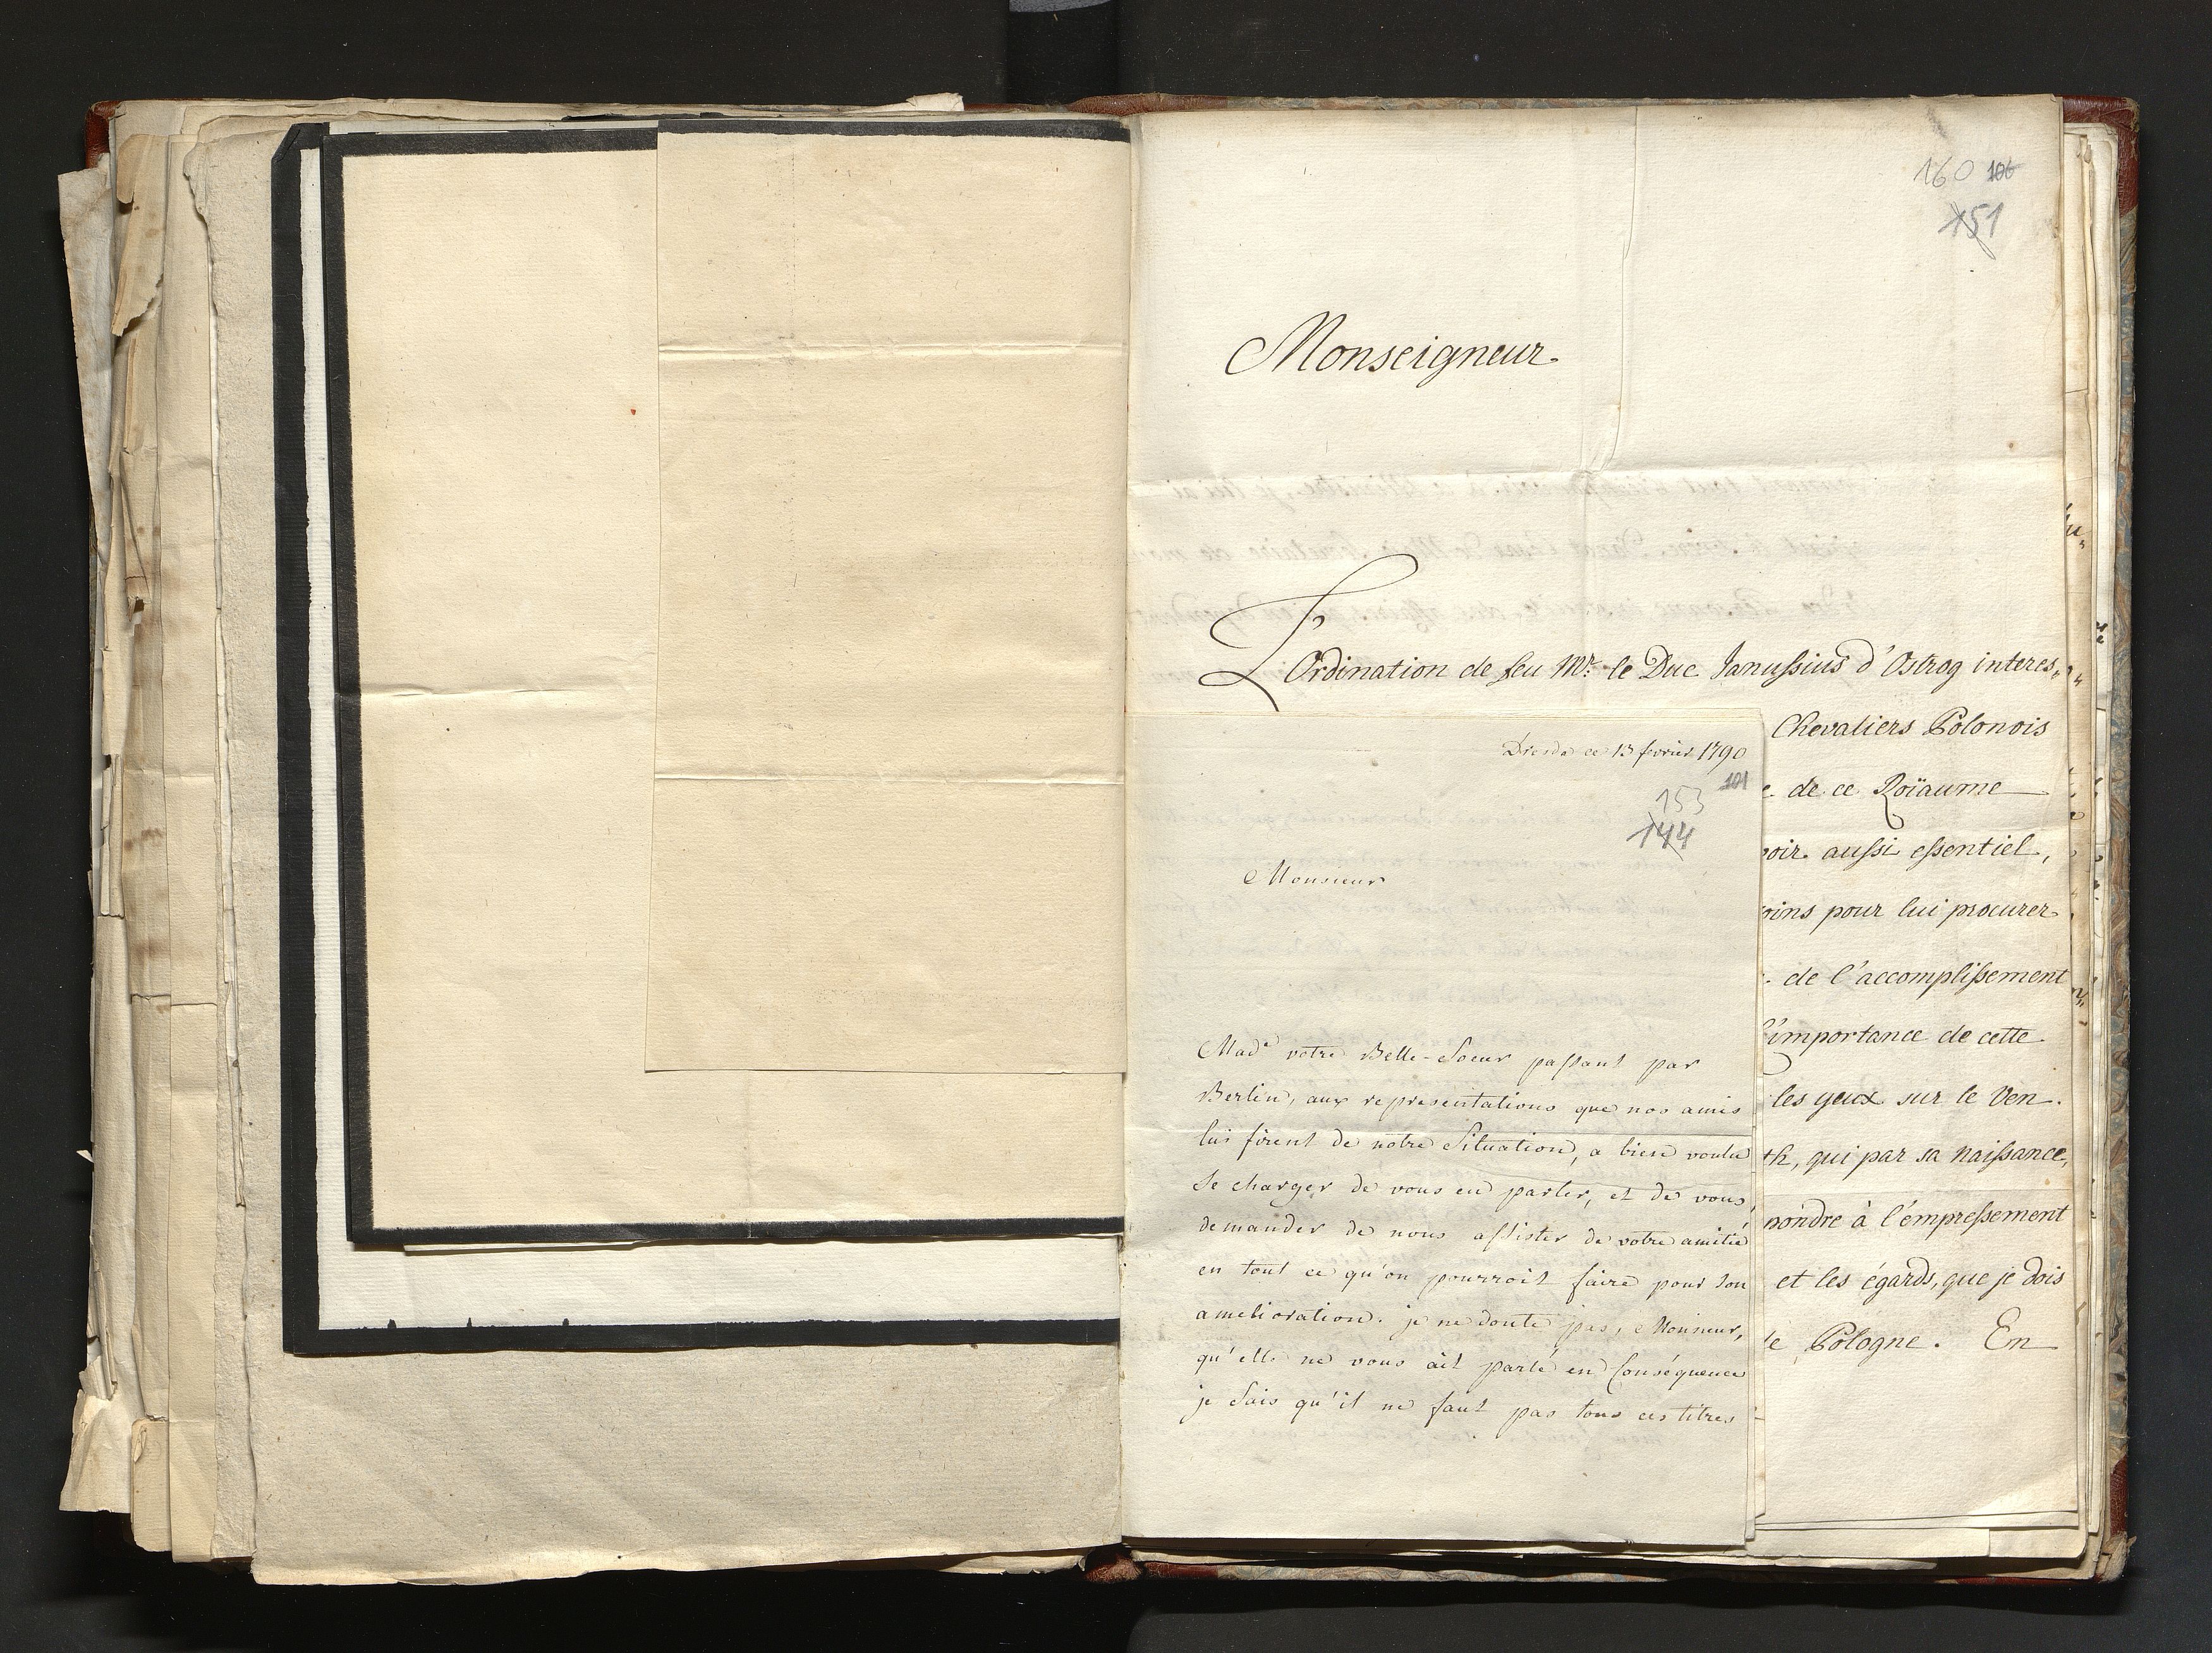 160 106
151
Monseigneur.
L'Ordination de feu Mr. le Duc Janussius d'Ostrog interes„
Chevaliers Polonois
de ce Roïaume
oir aussi essentiel,
oins pour lui procurer
de l'accomplissement
l'importance de cette
les yeux sur le Ven.
th, qui par sa naissance,
pondre à l'empressement
et les égards, que je dois
le Pologne. En
Dresde ce 13 fevrier 1790
101
153
144
Monsieur
Made votre Belle-Soeur passant par
Berlin, aux representations que nos amis
lui firent de notre Situation, a bien voulu
se charger de vous en parler, et de vous
demander de nous assister de votre amitié
en tout ce qu'on pourroit faire pour son
amelioration. je ne doute pas, Monsieur,
qu'elle ne vous ait parlé en Conséquence
je Sais qu'il ne faut pas tous ces titres